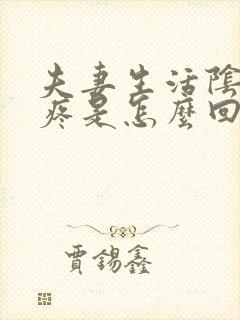 夫妻生活陰
疼是怎麼回
賈錫鑫